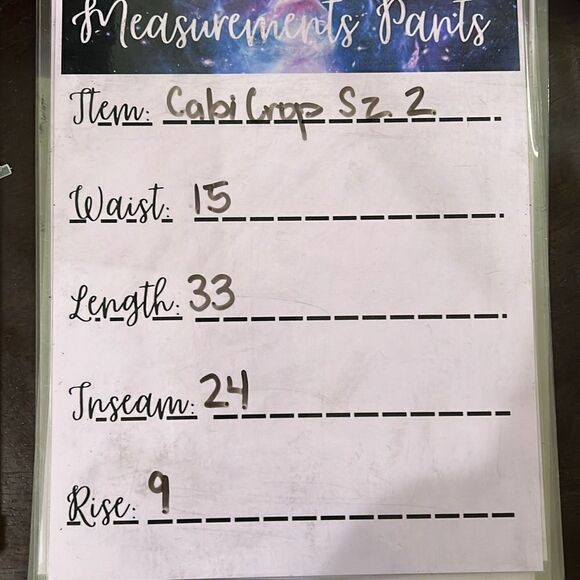 Measurements Pants
Item: Cabi Crop Sz 2
Waist: 15
Length: 33
Inseam: 24
Rise: 9